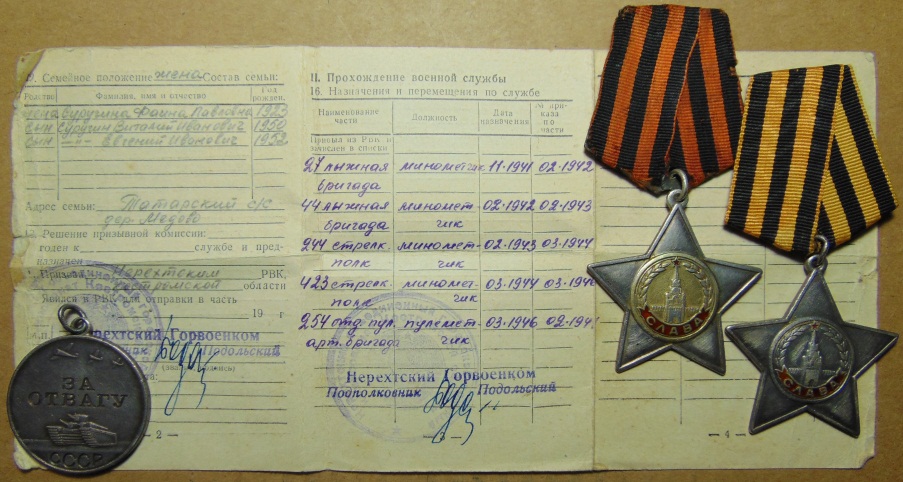 9. Семейное положение жена Состав семьи:
Родство Фамилия, имя и отчество Год рожден.
жена Сурузина Фаина Павловна 1923
сын Сурузин Виталий Иванович 1950
сын —"— Евгений Иванович 1952
Адрес семьи: Татарский с/с
дер. Медово
Решение призывной комиссии:
годен к службе и пред-
назначен
Призван Нерехтским РВК,
Костромской области
Явился в РВК для отправки в часть
19 г
Нерехтский Горвоенком
Подольский
— 2 —
II. Прохождение военной службы
16. Назначения и перемещения по службе
Наименование части Должность Дата назначения № приказа по части
Прибыл из РВК и
зачислен в списки
27 лыжная минометчик 11-1941 02-1942
бригада
44 лыжная миномет 02-1942 02-1943
бригада чик
244 стрелк. миномет- 02-1943 03-1944
полк чик
423 стрелк. миномет- 03-1944 03-1946
полк чик
254 отд. пул. пулемет- 03-1946 02-194
арт. бригада чик
Нерехтский Горвоенком
Подполковник Подольский
— 4 —
ЗА
ОТВАГУ
СССР
СЛАВА
СЛАВА